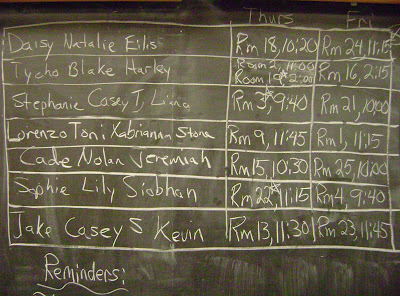 Thurs Fri
Daisy Natalie Eilis Rm 18, 10:20 Rm 24, 11:15
Tycho Blake Harley Room 2, 11:00 Rm 16, 2:15
Room 19, 2:00
Stephanie Casey T, Liana Rm 3, 9:40 Rm 21, 10:00
Lorenzo Toni Xabrianna Stona Rm 9, 11:45 Rm 1, 11:15
Cade Nolan Jeremiah Rm 15, 10:30 Rm 25, 10:00
Sophie Lily Siobhan Rm 22, 11:15 Rm 4, 9:40
Jake Casey S Kevin Rm 13, 11:30 Rm 23, 11:45
Reminders: